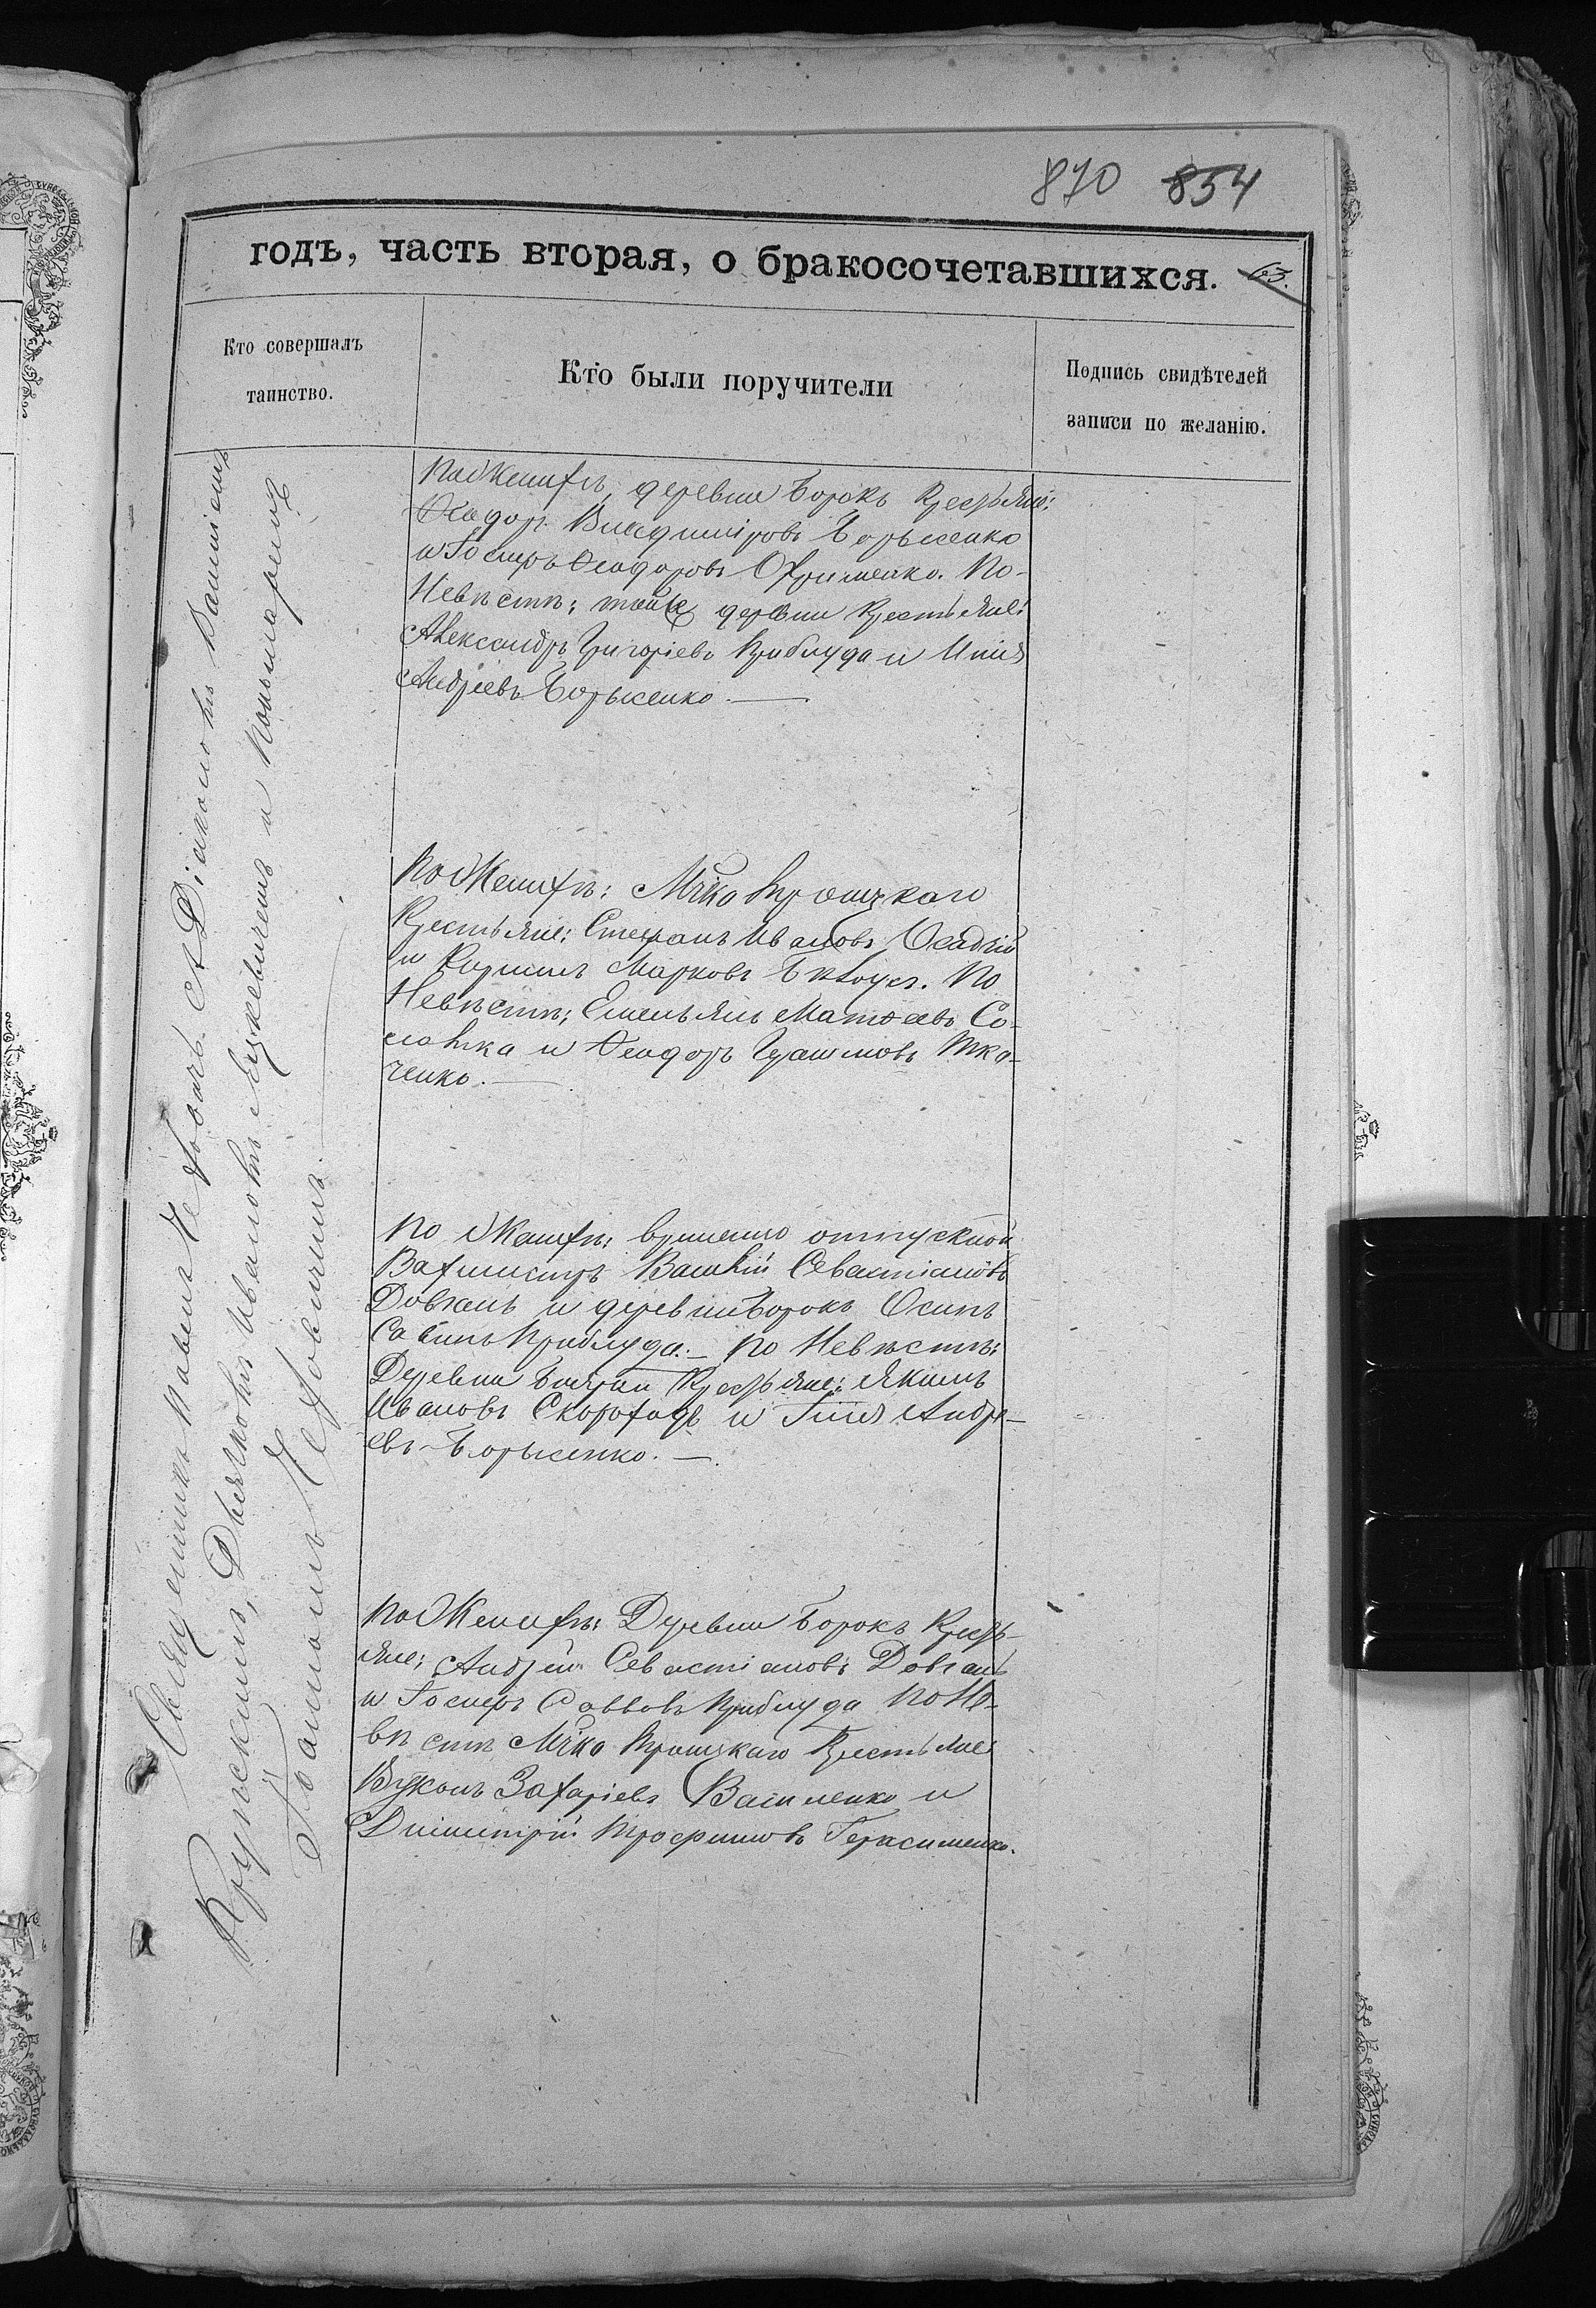 870 854
годъ, часть вторая, о бракосочетавшихся. 63.
Кто совершалъ
таинство.
Кто были поручители
Подпись свидѣтелей
записи по желанію.
Священникъ Павелъ съ Діакономъ
Крупскимъ, Дьячкомъ Ивановъ и Пономаремъ
По Женихѣ, деревни Борокъ Крестьяне:
Ѳеодоръ Владиміровъ Борысенко
и Іосифъ Ѳеодоровъ Охрименко. По
Невѣстѣ: той же деревни Крестьяне:
Александръ Григоріевъ Приблуда и Илія
Андріевъ Борысенко.
По Женихѣ: Мѣчка Троицкаго
Крестьяне: Стефанъ Ивановъ Осадчій
и Кириллъ Марковъ Бѣлоусъ. По
Невѣстѣ: Емельянъ Матѳеевъ Со-
ловка и Ѳеодоръ Ткa-
ченко.
По Женихѣ: временно отпускной
Вахмистръ Василій Севастіановъ
Довгань и деревни Борокъ Осипъ
Савинъ Приблуда. По Невѣстѣ:
Деревни Крестьяне: Якимъ
Ивановъ Скороходъ и Илія Андре-
евъ Борысенко.
По Женихѣ: Деревни Борокъ Кресть-
яне: Андрей Севастіановъ Довгань
и Іосифъ Саввовъ Приблуда По Не-
вѣстѣ Мѣчка Троицкаго Крестьяне
Вуколъ Захаріевъ Василенко и
Димитрій Трофимовъ Герасименко.